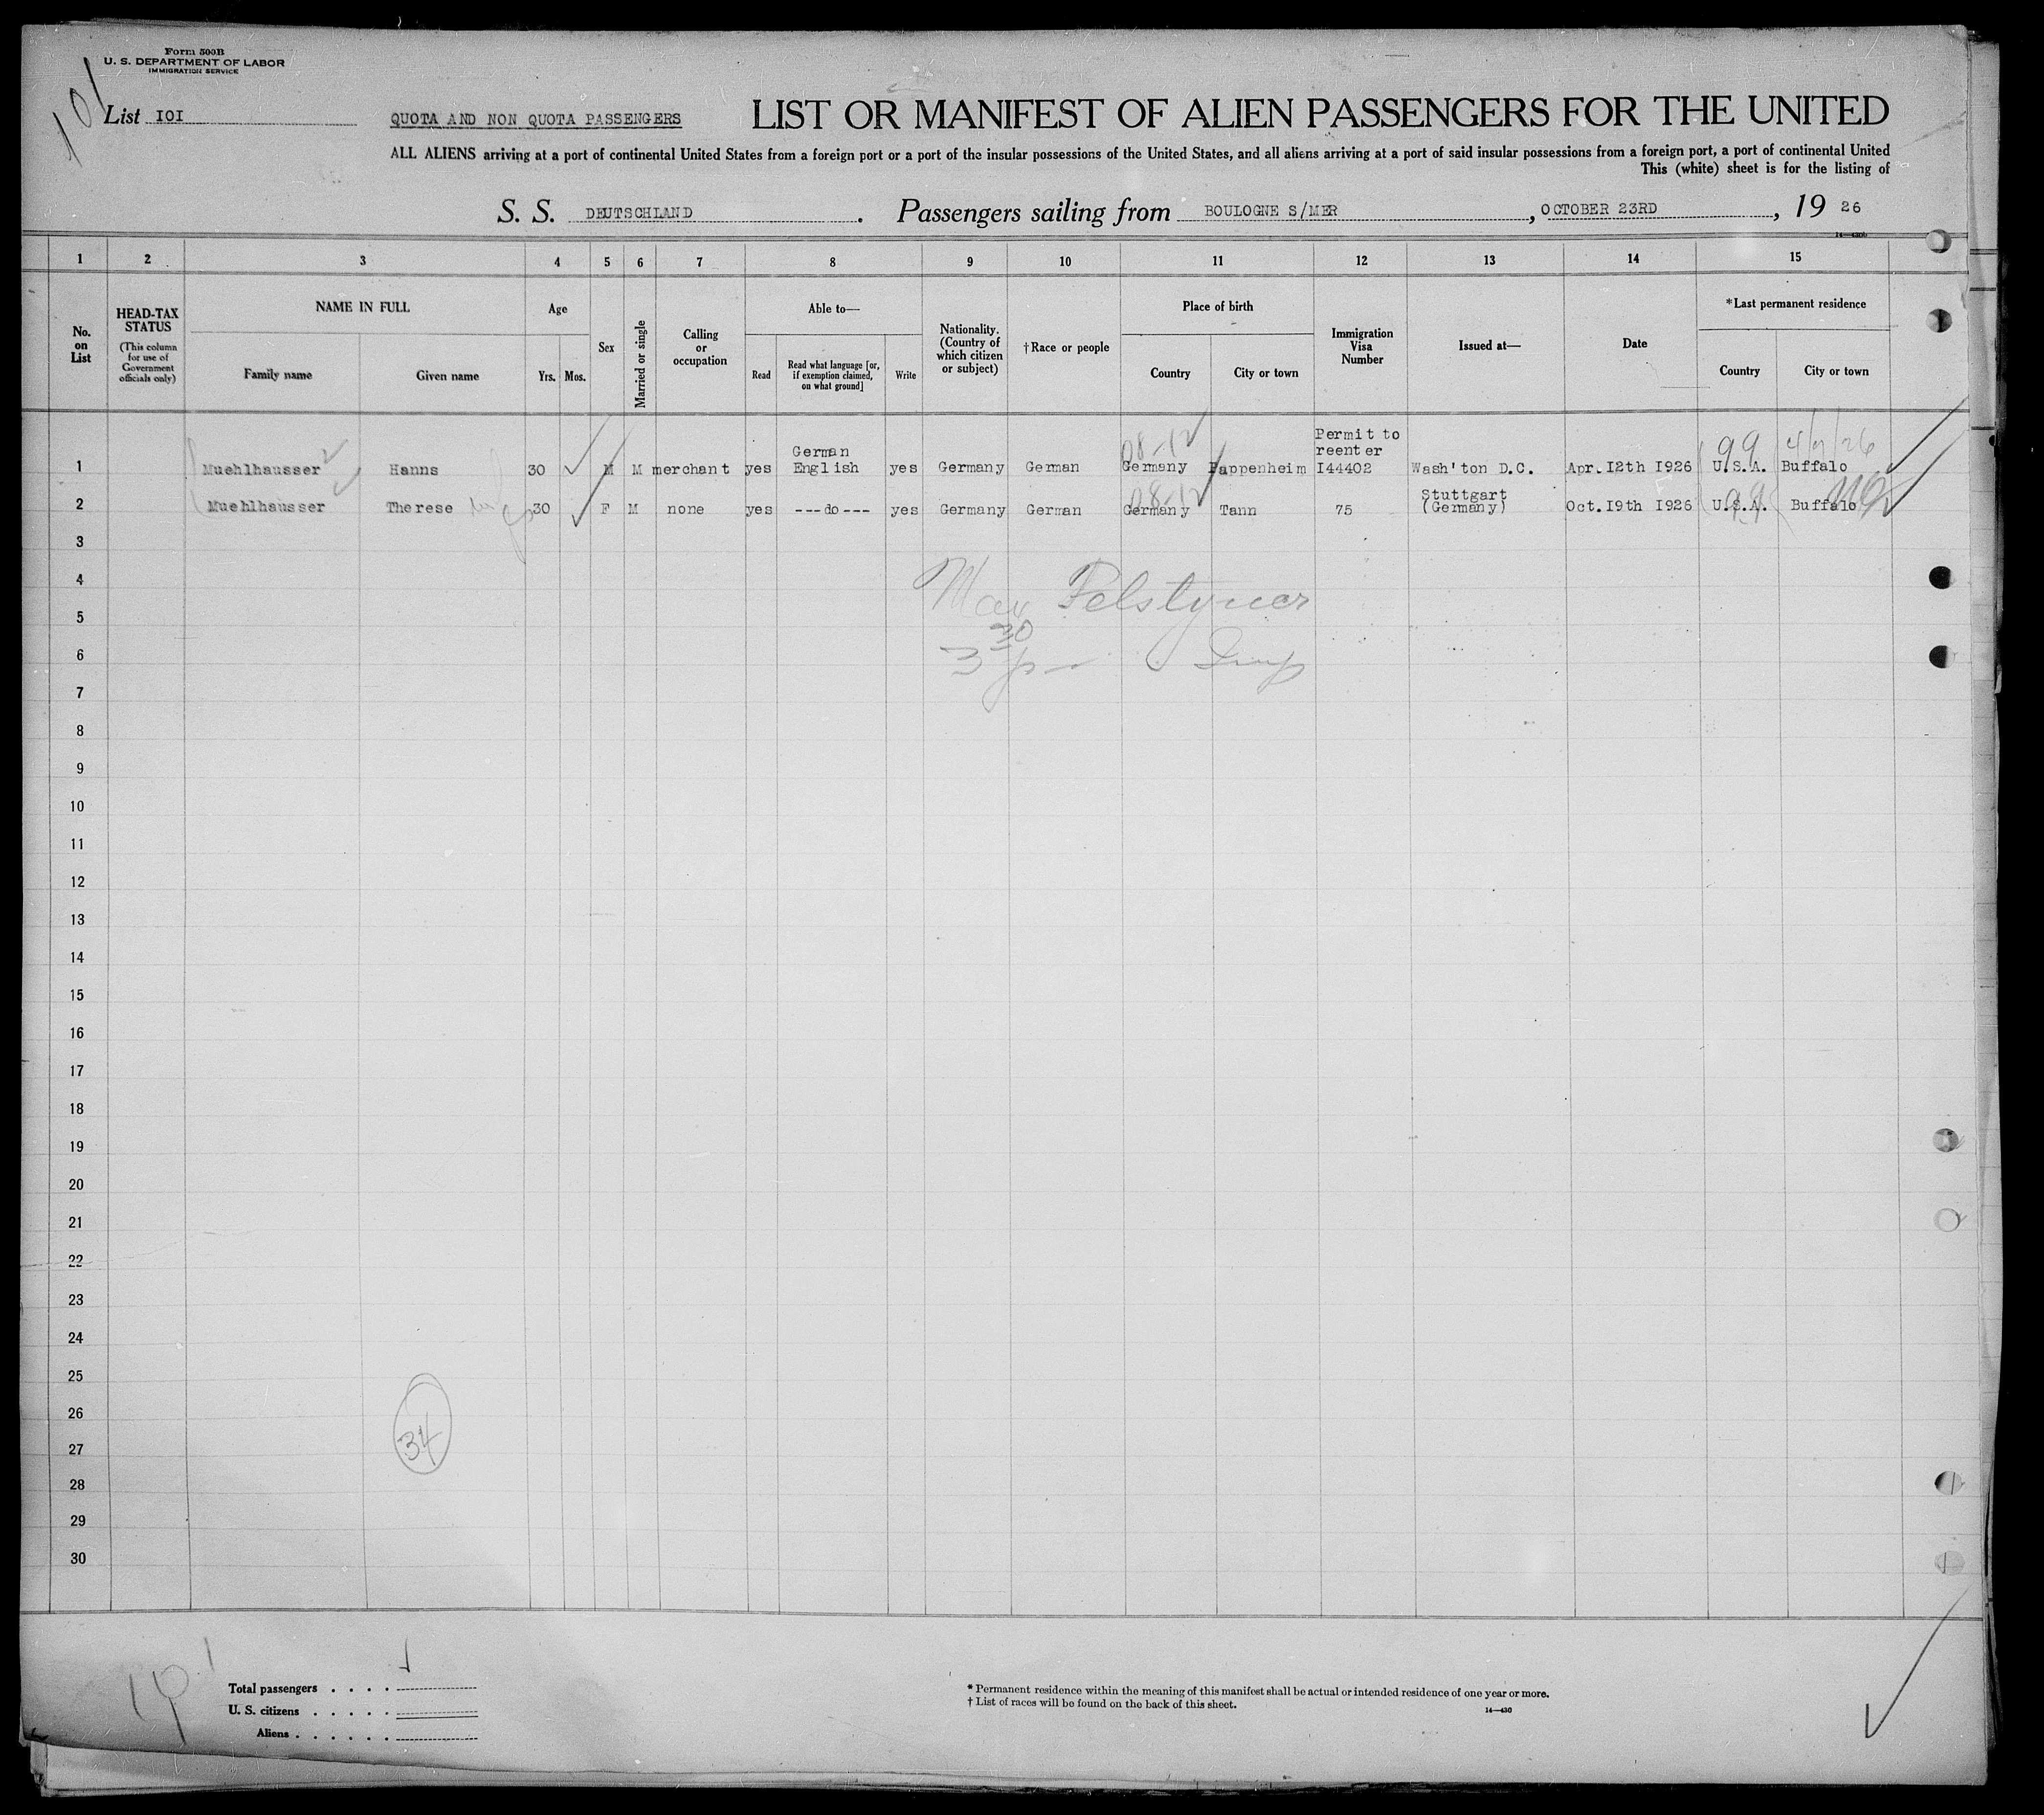 Form 500B
U. S. DEPARTMENT OF LABOR
IMMIGRATION SERVICE
101
List IOI
QUOTA AND NON QUOTA PASSENGERS
LIST OR MANIFEST OF ALIEN PASSENGERS FOR THE UNITED
ALL ALIENS arriving at a port of continental United States from a foreign port or a port of the insular possessions of the United States, and all aliens arriving at a port of said insular possessions from a foreign port, a port of continental United
This (white) sheet is for the listing of
S. S. DEUTSCHLAND. Passengers sailing from BOULOGNE S/MER, OCTOBER 23RD, 19 26
1 2 3 4 5 6 7 8 9 10 11 12 13 14 15
No. on List
HEAD-TAX STATUS
(This column for use of Government officials only)
NAME IN FULL
Family name
Given name
Age
Yrs. Mos.
Sex
Married or single
Calling or occupation
Able to—
Read
Read what language [or, if exemption claimed, on what ground]
Write
Nationality. (Country of which citizen or subject)
†Race or people
Place of birth
Country
City or town
Immigration Visa Number
Issued at—
Date
*Last permanent residence
Country
City or town
08-12 99 4/9/26
1 Muehlhausser Hanns 30 M M merchant yes German English yes Germany German Germany Pappenheim Permit to reenter I44402 Wash'ton D.C. Apr.I2th I926 U.S.A. Buffalo
08-12 99
2 Muehlhausser Therese 30 F M none yes ---do--- yes Germany German Germany Tann 75 Stuttgart (Germany) Oct.I9th I926 U.S.A. Buffalo
3
4
Max Felstyner
5
6
7
8
9
10
11
12
13
14
15
16
17
18
19
20
21
22
23
24
25
26
34
27
28
29
30
Total passengers
U. S. citizens
Aliens
* Permanent residence within the meaning of this manifest shall be actual or intended residence of one year or more.
† List of races will be found on the back of this sheet.
14—430